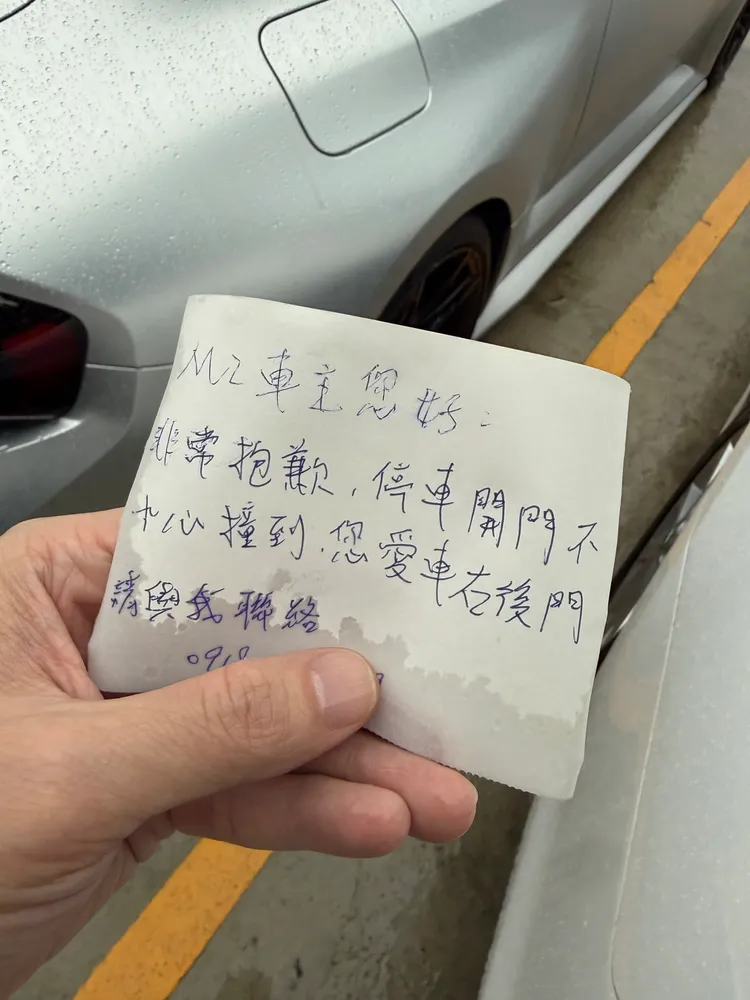 M2車主您好：
非常抱歉，停車開門不
小心撞到您愛車右後門
請與我聯絡
0918